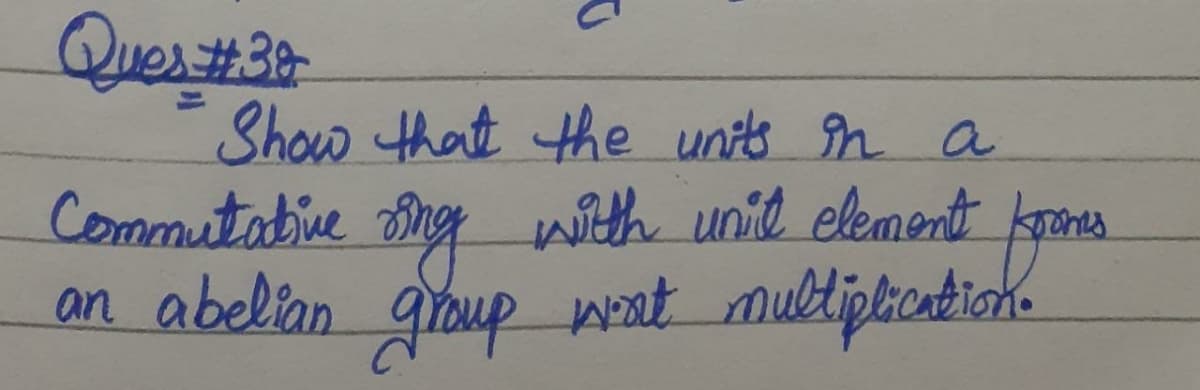 Ques #38
Show that the units in a
Commutative ring with unit element forms
an abelian group w.r.t multiplication.